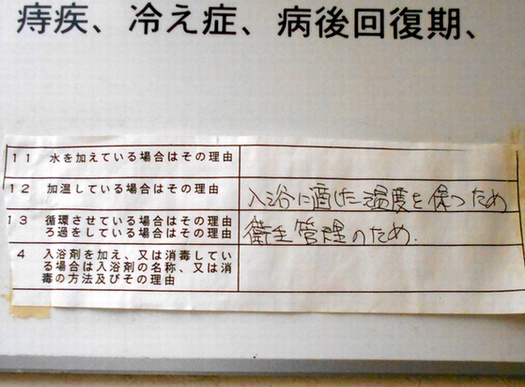 痔疾、冷え症、病後回復期、
11 水を加えている場合はその理由
12 加温している場合はその理由
入浴に適した温度を保つため
13 循環させている場合はその理由
ろ過をしている場合はその理由
衛生管理のため.
4 入浴剤を加え、又は消毒してい
る場合は入浴剤の名称、又は消
毒の方法及びその理由